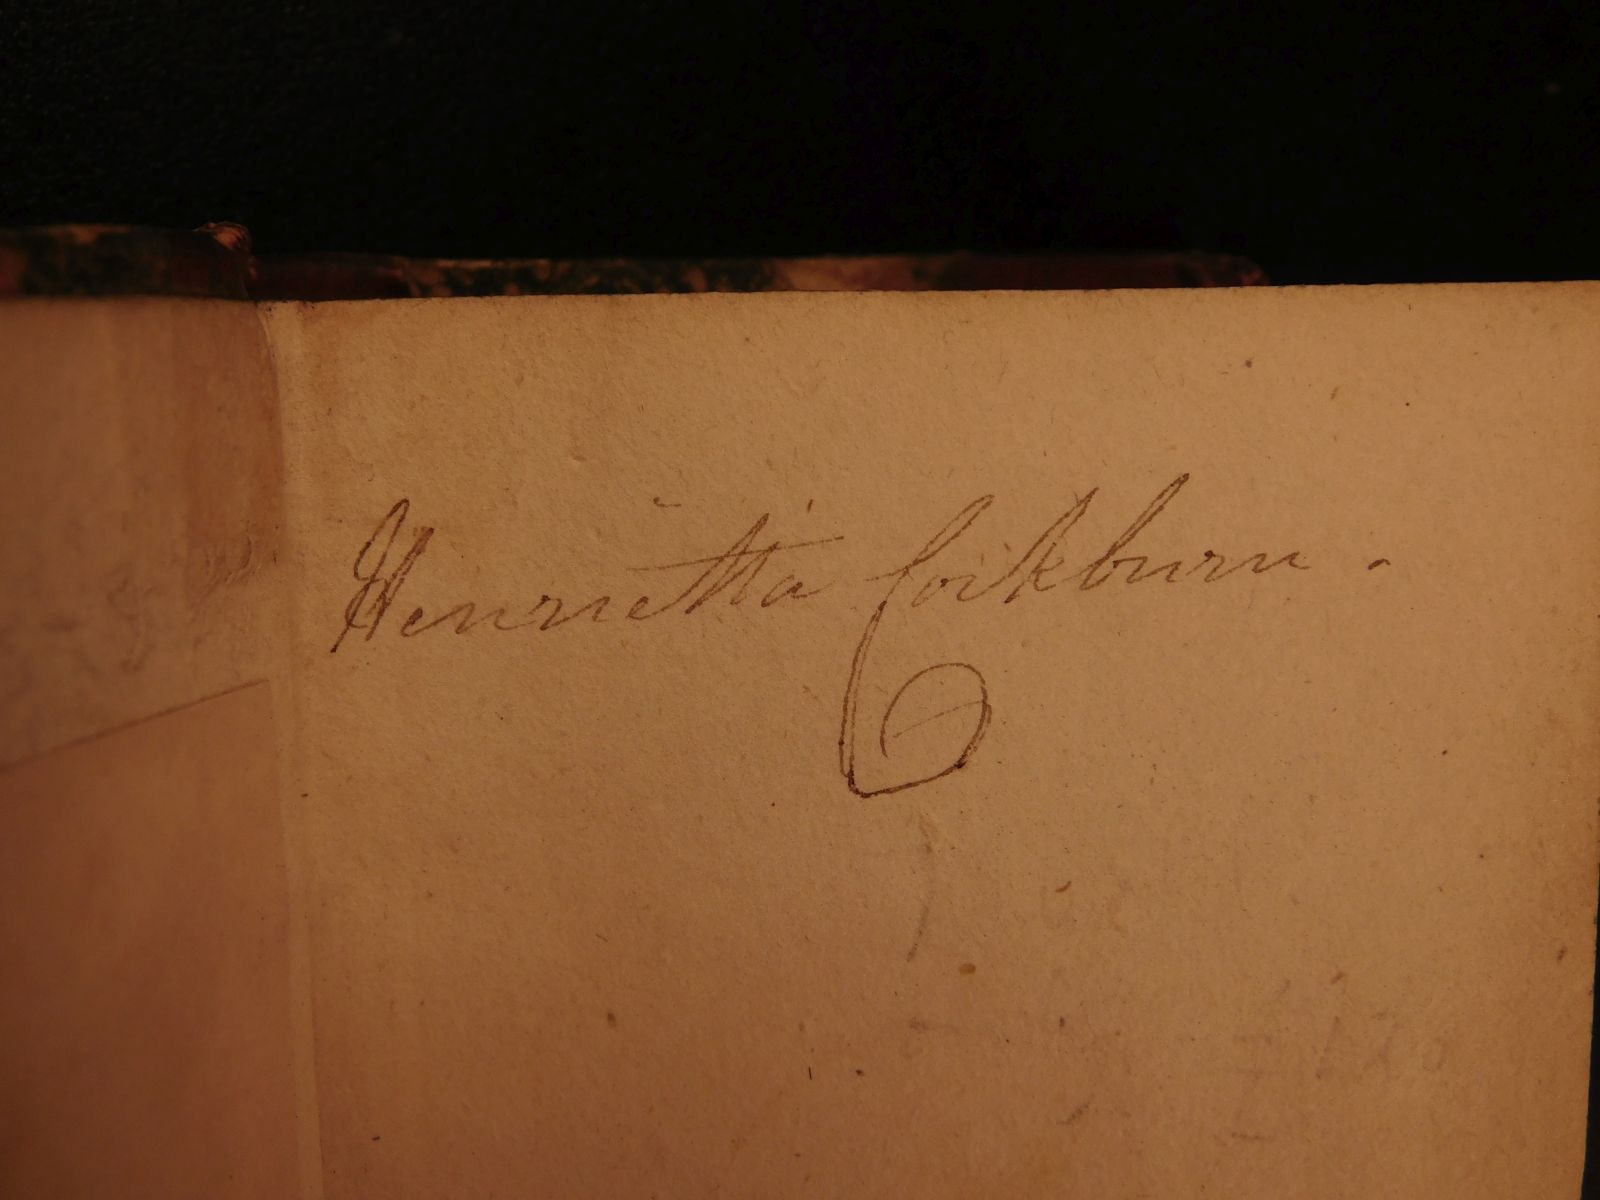 Henrietta Cockburn.